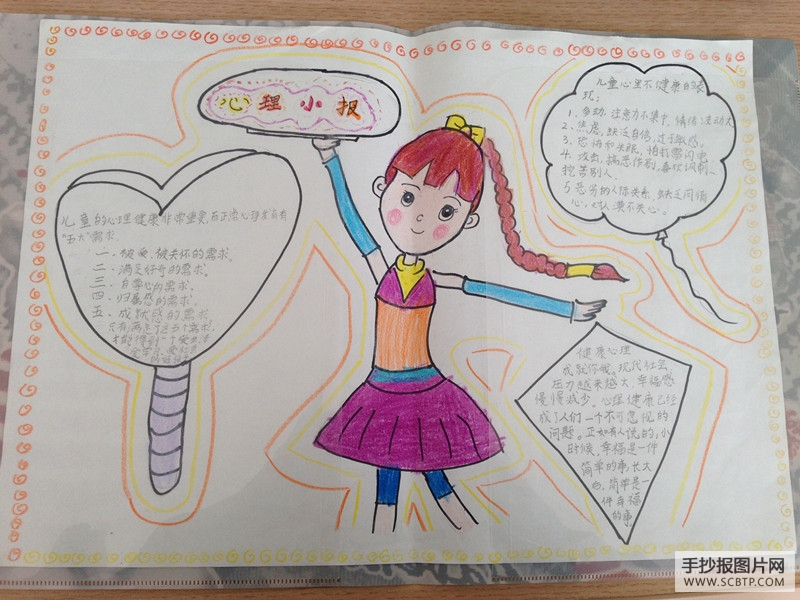 心理小报
儿童的心理健康非常重要,而正常心理发育有
"五大"需求.
一、被爱、被关怀的需求.
二、满足好奇的需求.
三、自尊心的需求.
四、归属感的需求.
五、成就感的需求.
只有满足了这五个需求,
才能得到一个
儿童心里不健康的表
现:
1、多动,注意力不集中,情绪波动大
2、焦虑,缺乏自信,过于敏感。
3、恐怖和失眠,怕打雷闪电
4、攻击,搞恶作剧,喜欢讽刺、
挖苦别人.
5、恐苦的人际关系,缺乏同情
心,对人漠不关心。
健康心理
成就你我。现代社会,
压力越来越大,幸福感
慢慢减少。心理健康已经
成了人们一个不可忽视的
问题。正如有人说的:小
时候,幸福是一件
简单的事,长大
后,简单是一
件幸福
的事.
手抄报图片网
WWW.SCBTP.COM